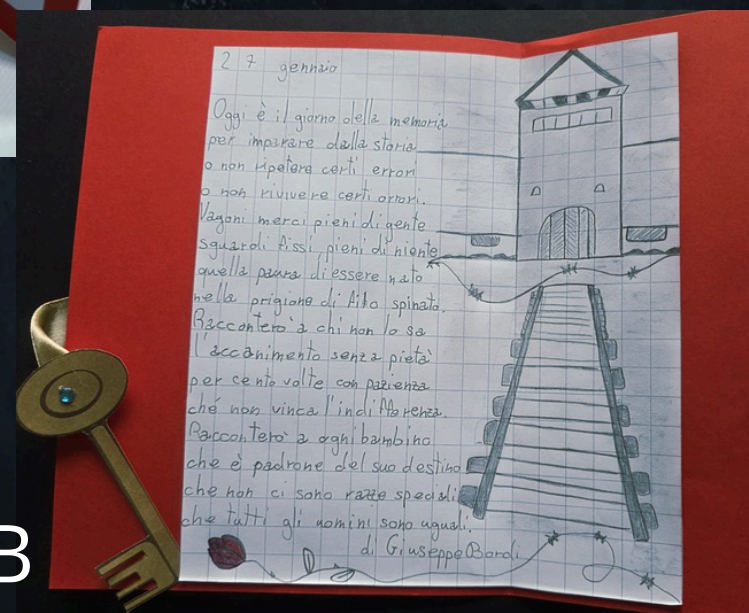 27 gennaio
Oggi è il giorno della memoria
per imparare dalla storia
o non ripetere certi errori
o non rivivere certi orrori.
Vagoni merci pieni di gente
sguardi fissi, pieni di niente
quella paura di essere nato
nella prigione di filo spinato.
Racconterò a chi non lo sa
l'accanimento senza pietà
per cento volte con pazienza
ché non vinca l'indifferenza.
Racconterò a ogni bambino
che è padrone del suo destino
che non ci sono razze speciali
che tutti gli uomini sono uguali.
di Giuseppe Bordi
B